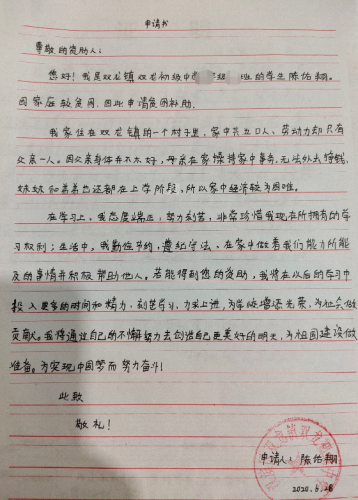 申请书
尊敬的资助人:
您好!我是双龙镇双龙初级中 级 班的学生陈佑翔。
因家庭较贫困,因此申请贫困补助。
我家住在双龙镇的一个村子里,家中共五口人、劳动力却只有
父亲一人。因父亲身体并不太好,母亲在家操持家中事务,无法外出挣钱,
妹妹和弟弟也还都在上学阶段,所以家中经济较为困难。
在学习上,我态度端正,努力刻苦,非常珍惜我现在所拥有的学
习权利;生活中,我勤俭节约,遵纪守法、在家中做着我们能力所能
及的事情并积极帮助他人。若能得到您的资助,我将在以后的学习中
投入更多的时间和精力,刻苦学习,力求上进,为学校增添光荣,为社会做
贡献。我将通过自己的不懈努力去创造自己更美好的明天,为祖国建设做
准备。为实现中国梦而努力奋斗!
此致
敬礼!
申请人:陈佑翔
2020.5.28